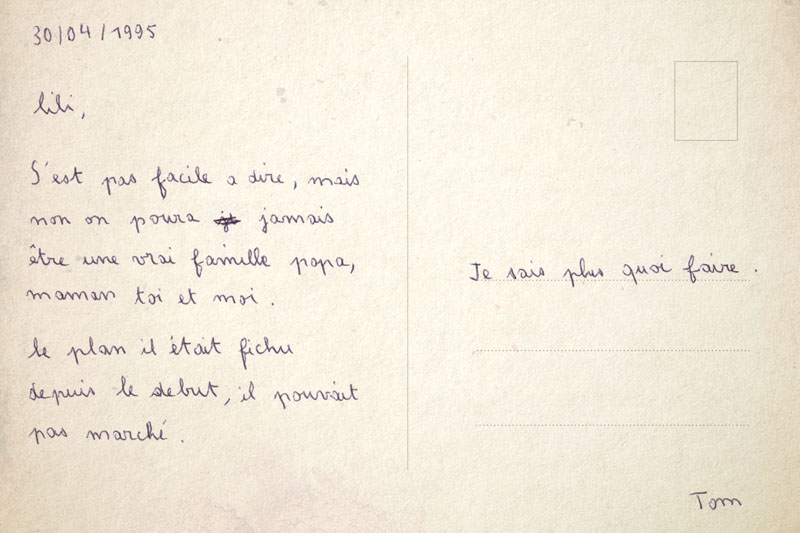 30/04/1995
Lili,
S'est pas facile a dire, mais
non on poura jamais
être une vrai famille papa,
maman toi et moi.
le plan il était fichu
depuis le debut, il pouvait
pas marché.
Je sais plus quoi faire.
Tom